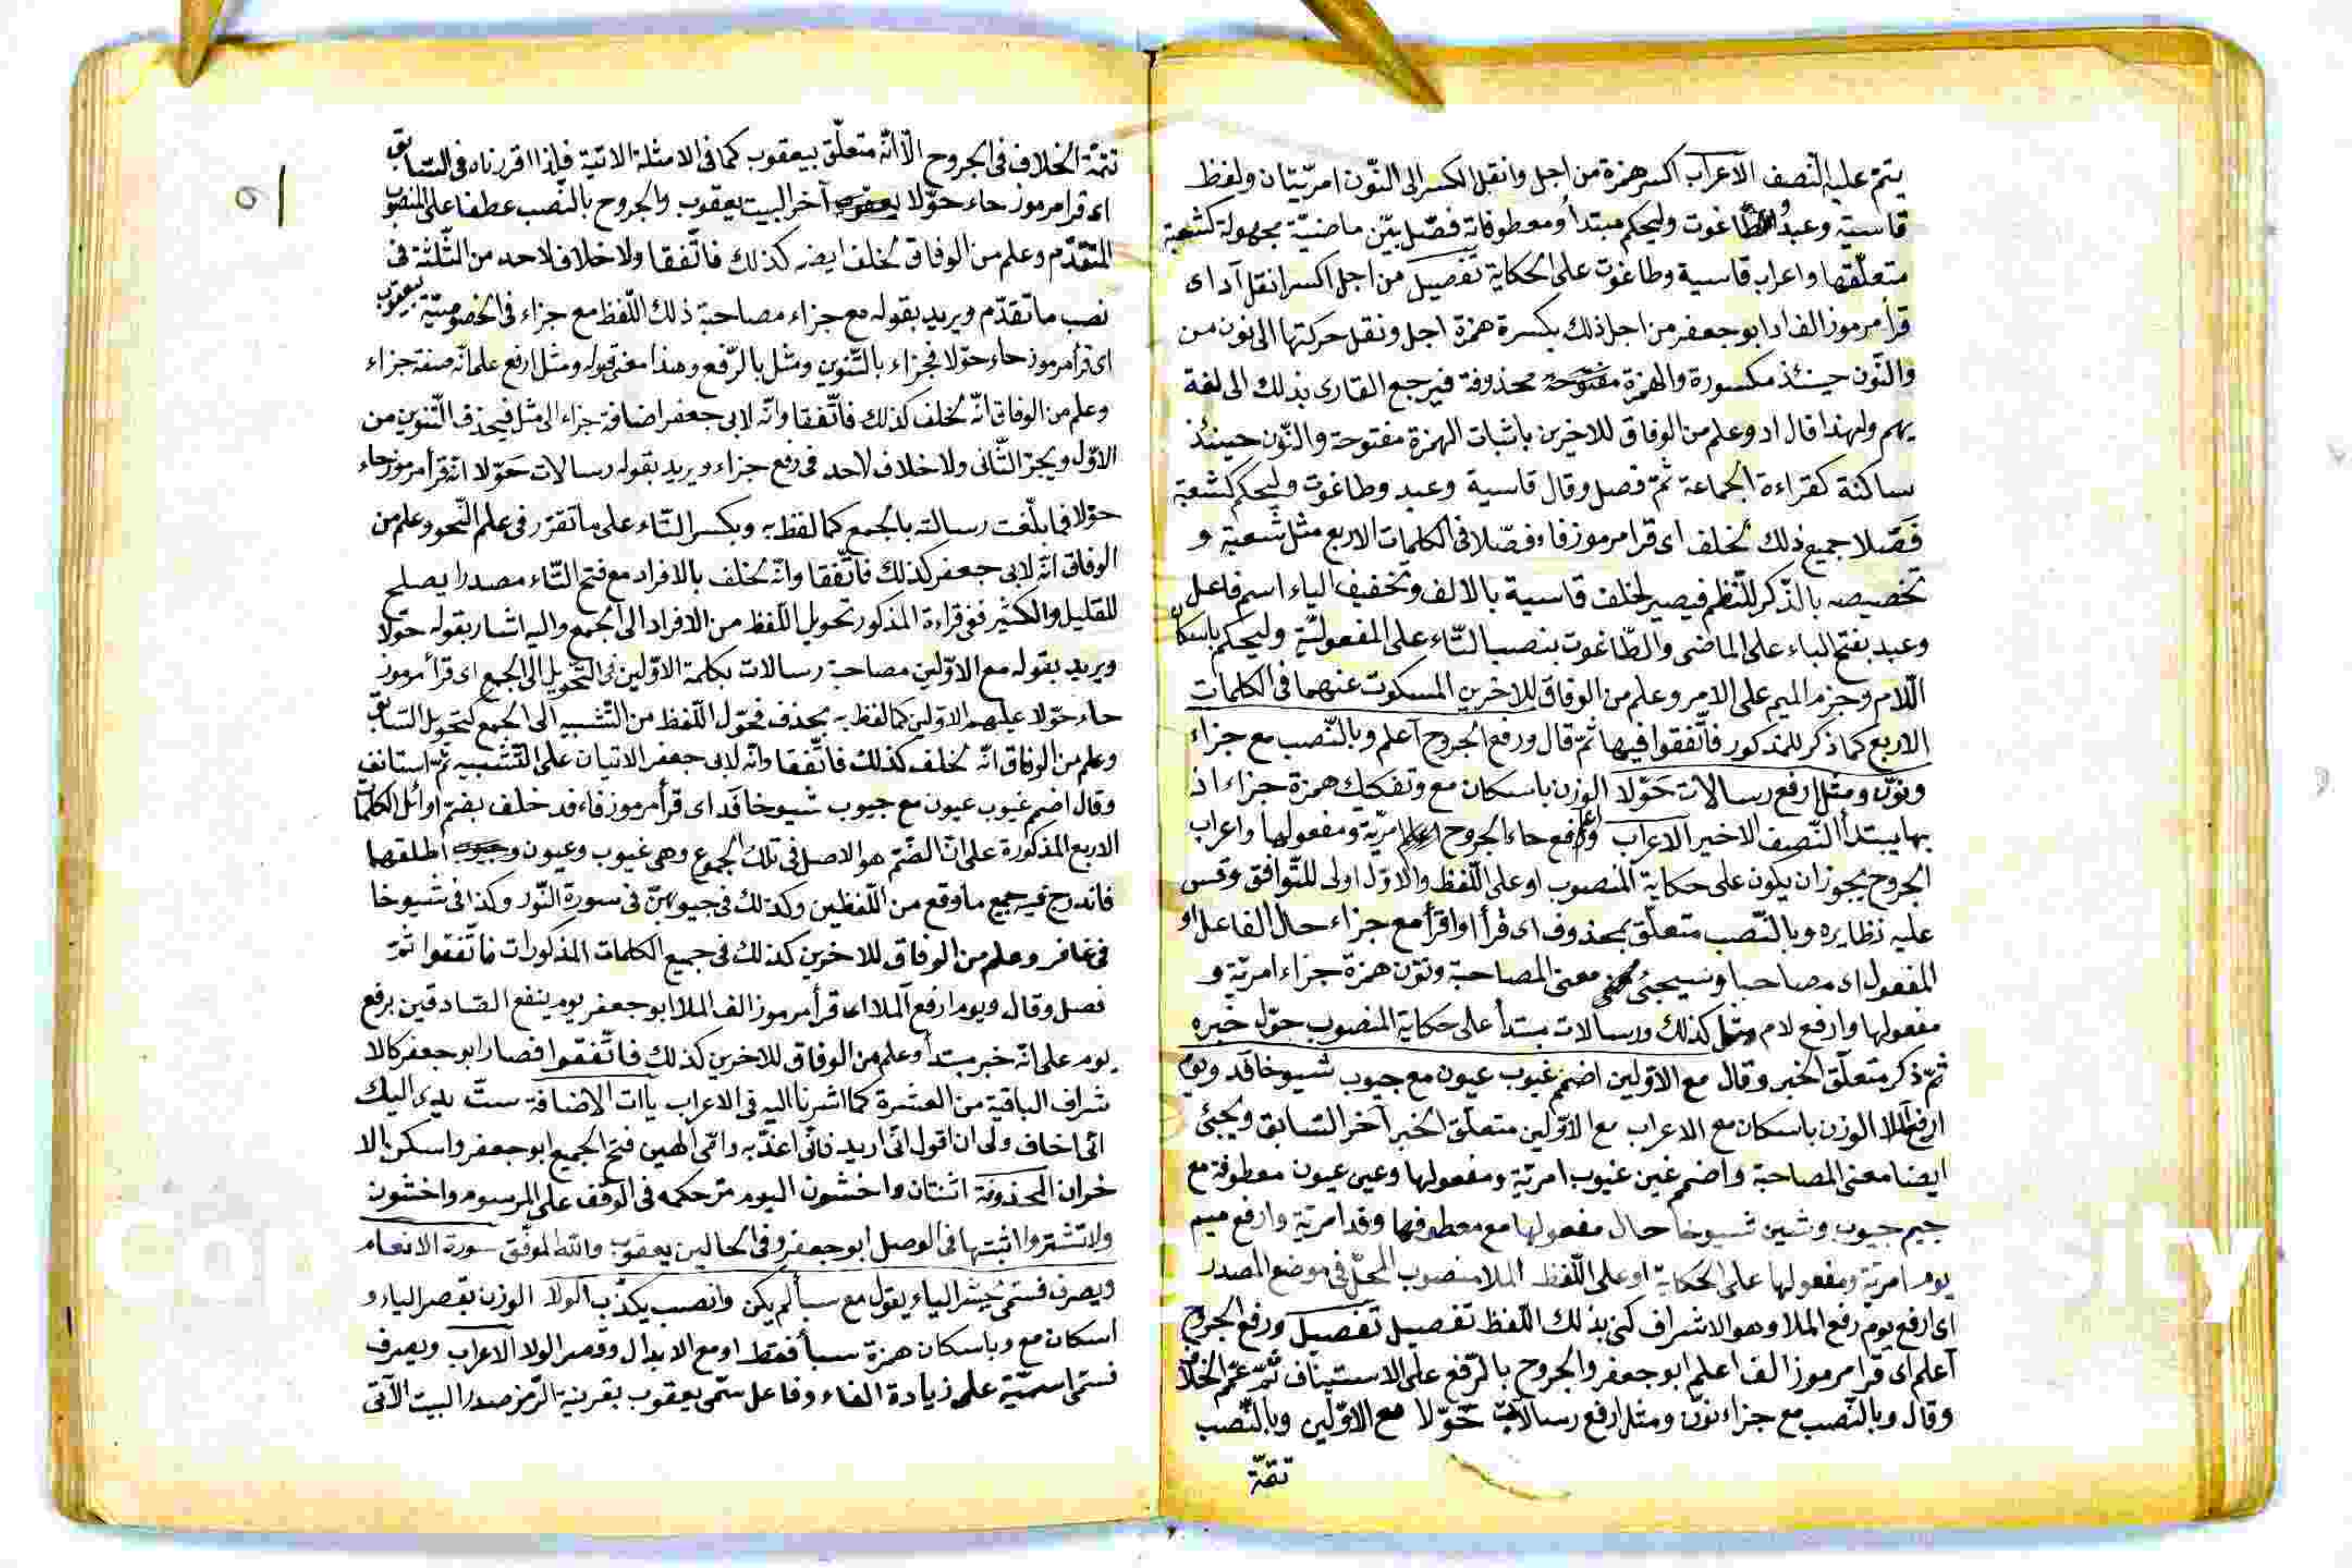 يتم عليه النصف الاعراب اكسر همزة من اجل وانقل الكسر الى النون امريتان ولفظ
قاسية وعبد الطاغوت وليحكم مبتدأ ومعطوفاته فصل بين ماضية مجهولة كشعبة
متعلقها واعراب قاسية وطاغوت على الحكاية تفصيل من اجل اكسر انقل اد اى
قرأ مرموز الف اد ابو جعفر من اجل ذلك بكسرة همزة اجل ونقل حركتها الى نون من
والنون حينئذ مكسورة والهمزة محذوفة فيرجع القارى بذلك الى لغة
يهم ولهذا قال اد وعلم من الوفاق للاخرين باثبات الهمزة مفتوحة والنون حينئذ
ساكنة كقراءة الجماعة ثم فصل وقال قاسية وعبد وطاغوت وليحكم كشعبة
فصلا جميع ذلك لخلف اى قرا مرموز فاء فصلا فى الكلمات الاربع مثل شعبة و
تخصيصه بالذكر للنظم فيصير لخلف قاسية بالالف وتخفيف الياء اسم فاعل
وعبد بفتح الباء على الماضى والطاغوت بنصب التاء على المفعولية وليحكم باسكان
اللام وجزم الميم على الامر وعلم من الوفاق للاخرين المسكوت عنهما فى الكلمات
الاربع كما ذكر للمذكور فاتفقوا فيها ثم قال ورفع الجروح اعلم وبالنصب مع جزاء
ونون ومثل ارفع رسالات حولا الوزن باسكان مع وتفكيك همزة جزاء اذ
بها يبتدأ النصف الاخير الاعراب ورفع حاء الجروح امرية ومفعولها واعراب
الجروح يجوز ان يكون على حكاية المنصوب او على اللفظ والاول اولى للتوافق وقس
عليه نظايره وبالنصب متعلق بمحذوف اى قرأ او اقرأ مع جزاء حال الفاعل او
المفعول اى مصاحبا وسيجئ معنى المصاحبة ونون همزة جزاء امرية و
مفعولها وارفع لام مثل كذلك ورسالات مبتدأ على حكاية المنصوب حول خبره
ثم ذكر متعلق الخبر وقال مع الاولين اضمم غيوب عيون مع جيوب شيوخا فد ويوم
ارفع الملا الوزن باسكان مع الاعراب مع الاولين متعلق الخبر آخر السابق ويجئ
ايضا معنى المصاحبة واضمم غين غيوب امرية ومفعولها وعين عيون معطوفة مع
جيم جيوب وشين شيوخا حال مفعولها مع معطوفها وفد امرية وارفع ميم
يوم امرية ومفعولها على الحكاية او على اللفظ الملا منصوب المحل فى موضع المصدر
اى ارفع يوم رفع الملا وهو الاشراف كنى بذلك اللفظ تفصيل تفصيل ورفع الجروح
اعلم اى قرا مرموز الف اعلم ابو جعفر والجروح بالرفع على الاستيناف ثم عمم الخلاف
وقال وبالنصب مع جزاء نون ومثل ارفع رسالات حولا مع الاولين وبالنصب
تتمة
تتمة الخلاف فى الجروح الا انه متعلق بيعقوب كما فى الامثلة الاتية فلذا اقررناه فى السابق
اى قرا مرموز حاء حولا آخر البيت يعقوب والجروح بالنصب عطفا على المنصوب
المتقدم وعلم من الوفاق لخلف ايضه كذلك فاتفقا ولا خلاف لاحد من الثلثة فى
نصب ما تقدم ويريد بقوله مع جزاء مصاحبة ذلك اللفظ مع جزاء فى الخصوصية بيعقوب
اى قرأ مرموز حاء حولا فجزاء بالتنوين ومثل بالرفع وهذا معنى قوله ومثل ارفع علم انه صفة جزاء
وعلم من الوفاق انه لخلف كذلك فاتفقا وانه لابى جعفر اضافة جزاء الى مثل فيحذف التنوين من
الاول ويجر الثانى ولا خلاف لاحد فى رفع جزاء ويريد بقوله رسالات حولا انه قرأ مرموز حاء
حولا فما بلغت رسالته بالجمع كما لفظ به وبكسر التاء على ما تقرر فى علم النحو وعلم من
الوفاق انه لابى جعفر كذلك فاتفقا وانه لخلف بالافراد مع فتح التاء مصدرا يصلح
للقليل والكثير ففى قراءة المذكور تحويل اللفظ من الافراد الى الجمع واليه اشار بقوله حولا
ويريد بقوله مع الاولين مصاحبة رسالات بكلمة الاولين فى التحويل الى الجمع اى قرأ مرموز
حاء حولا عليهم الاولين كما لفظ به بحذف فحول اللفظ من التثنية الى الجمع كتحويل السابق
وعلم من الوفاق انه لخلف كذلك فاتفقا وانه لابى جعفر الاتيان على التثنية ثم استانف
وقال اضمم غيوب عيون مع جيوب شيوخا فد اى قرأ مرموز فاء فد خلف بضم اوائل الكلمات
الاربع المذكورة على ان الضم هو الاصل فى تلك الجموع وهى غيوب وعيون اطلقهما
فاندرج فيه جميع ما وقع من اللفظين وكذلك فى جيوبهن فى سورة النور وكذا فى شيوخا
فى غافر وعلم من الوفاق للاخرين كذلك فى جميع الكلمات المذكورات فاتفقوا ثم
فصل وقال ويوم ارفع الملا اى قرأ مرموز الف الملا ابو جعفر يوم ينفع الصادقين برفع
يوم على انه خبر مبتدأ وعلم من الوفاق للاخرين كذلك فاتفقوا فصار ابو جعفر كالا
شراف الباقية من العشرة كما اشرنا اليه فى الاعراب ياات الاضافة ست يدى اليك
انى اخاف ولى ان اقول انى اريد فانى اعذبه وامى الهين فتح الجميع ابو جعفر واسكن الا
خران المحذوفة اثنتان واخشون اليوم مر حكمه فى الوقف على المرسوم واخشون
ولا تشتروا اثبتها فى الوصل ابو جعفر وفى الحالين يعقوب والله الموفق سورة الانعام
ويصرف فسمى نحشر الياء يقول مع سبأ لم يكن وانصب يكذب الولا الوزن بقصر الياء و
اسكان مع وباسكان همزة سبأ فقط او مع الابدال وقصر الولا الاعراب ويصرف
فسمى اسمية على زيادة الفاء وفاعل سمى يعقوب بقرينة الرمز صدر البيت الآتى